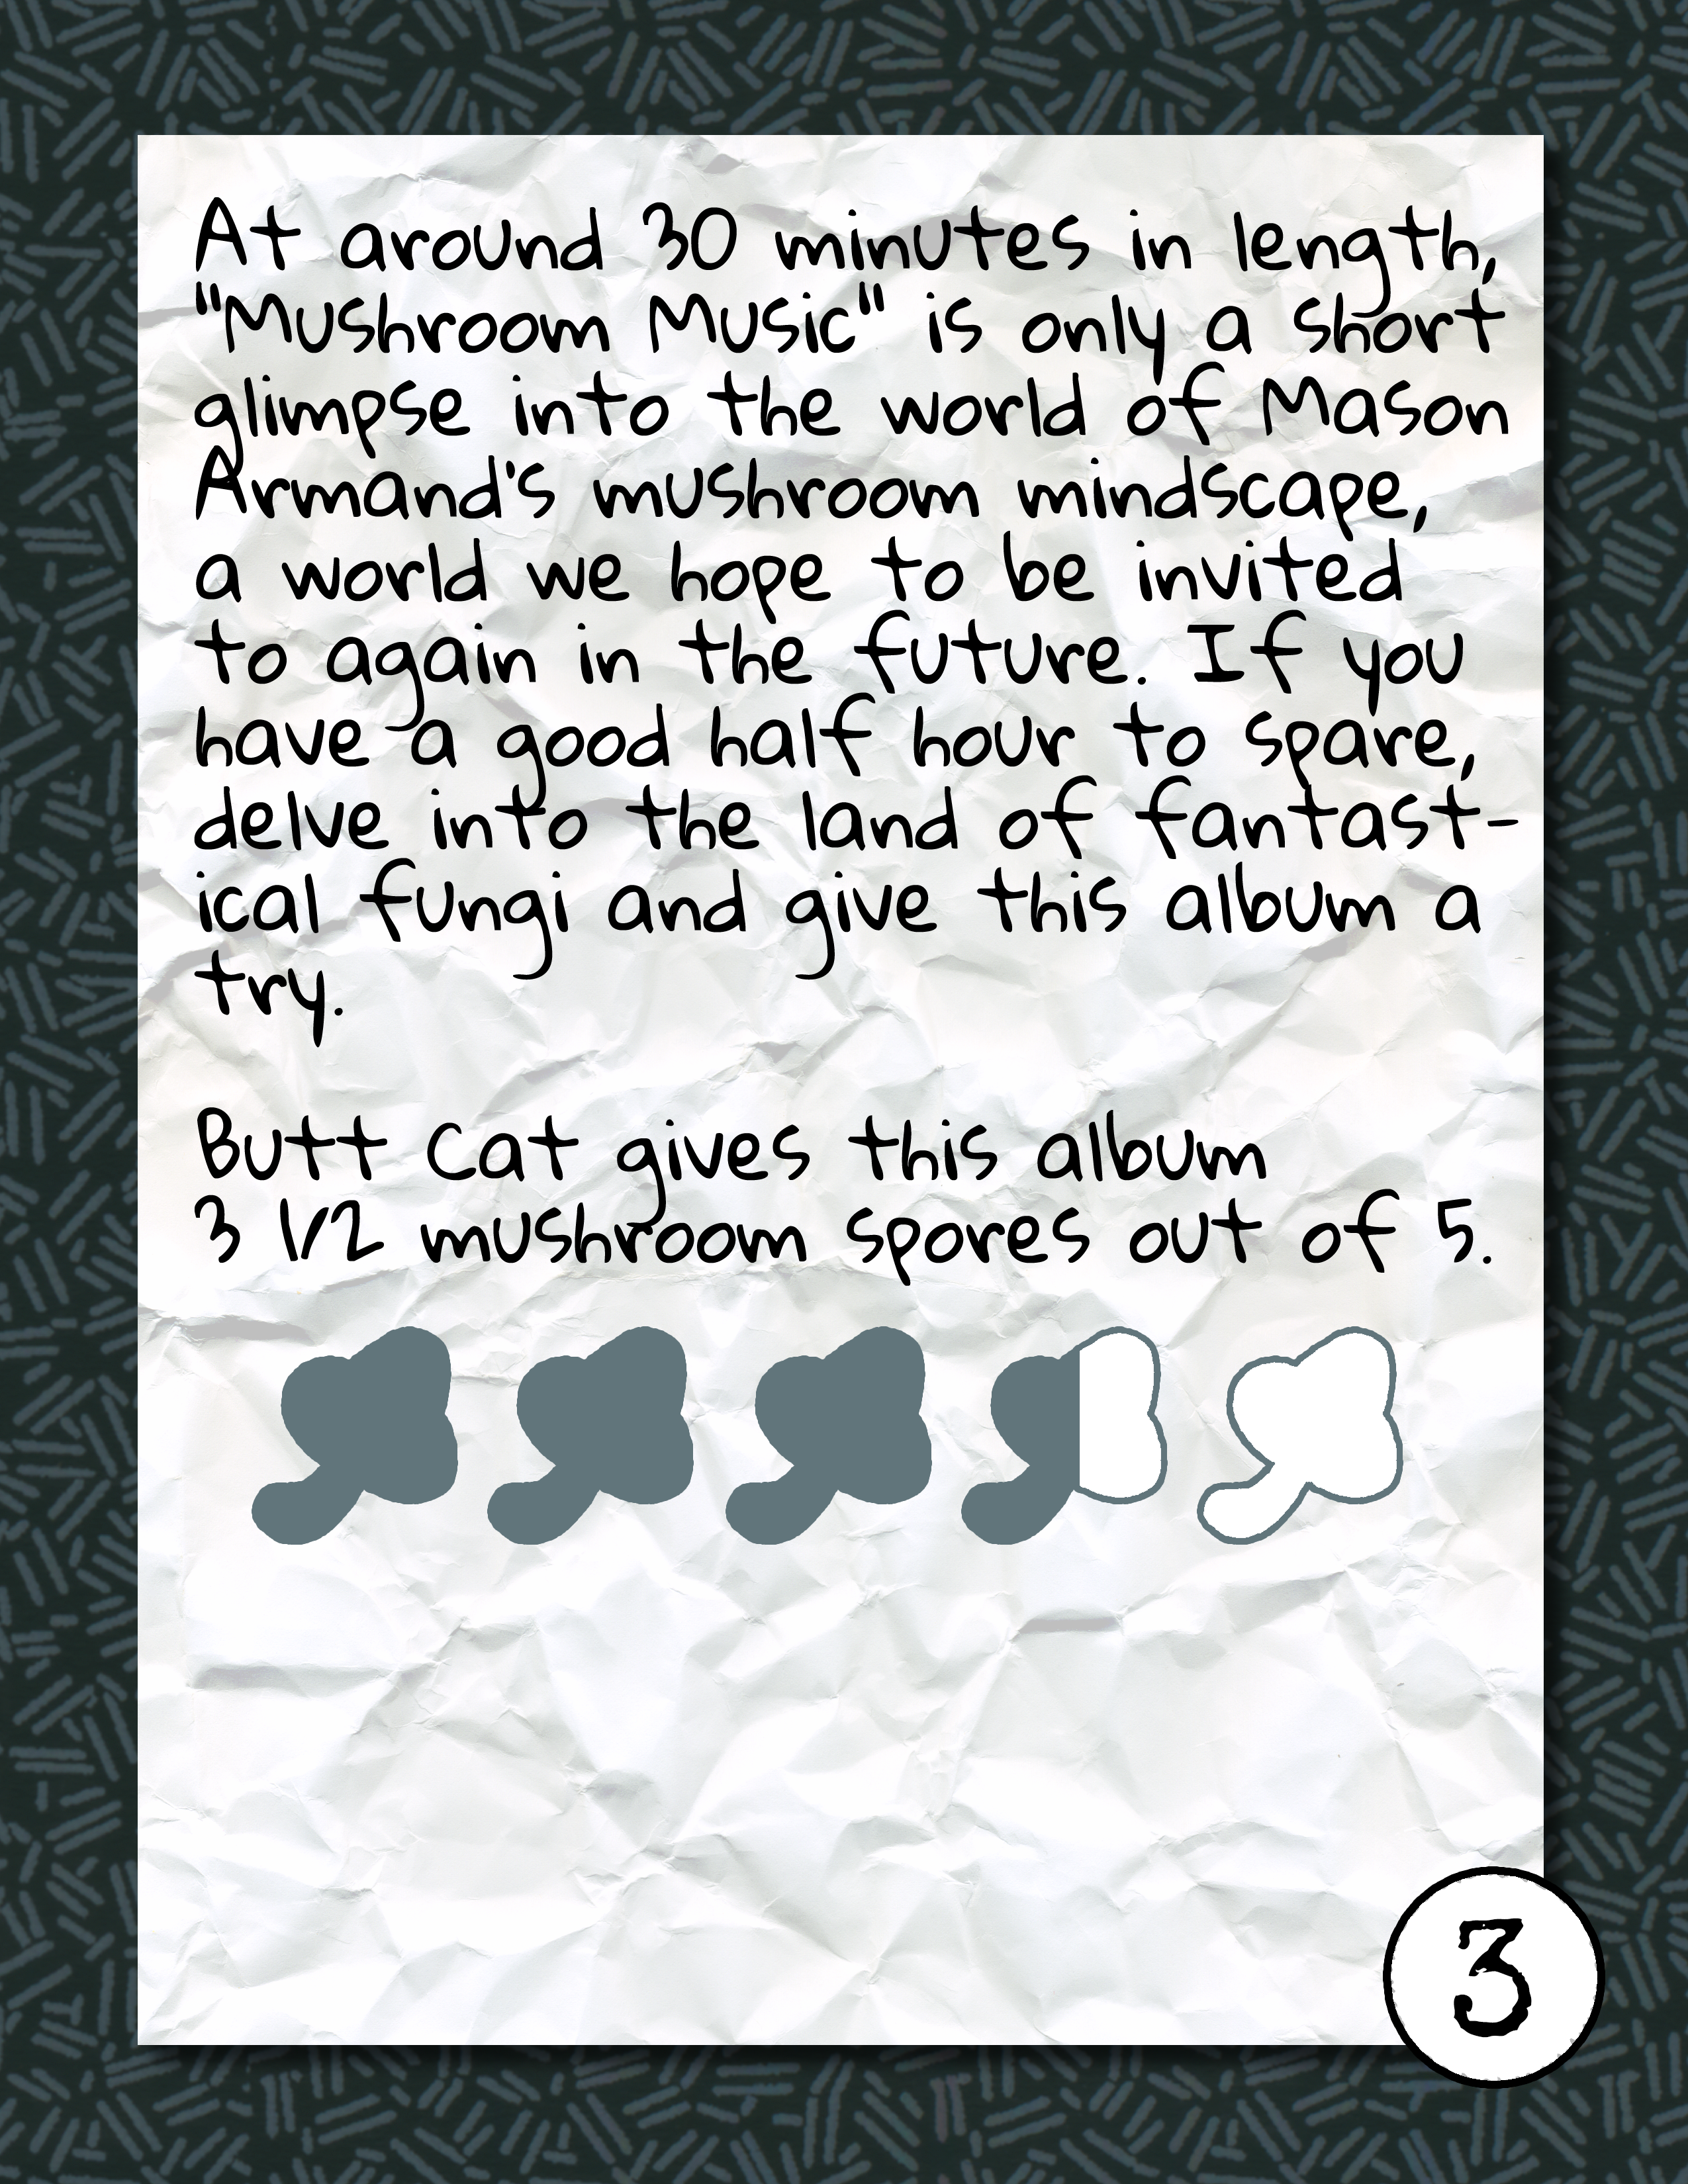 At around 30 minutes in length,
"Mushroom Music" is only a short
glimpse into the world of Mason
Armand's mushroom mindscape,
a world we hope to be invited
to again in the future. If you
have a good half hour to spare,
delve into the land of fantast-
ical fungi and give this album a
try.
Butt Cat gives this album
3 1/2 mushroom spores out of 5.
3